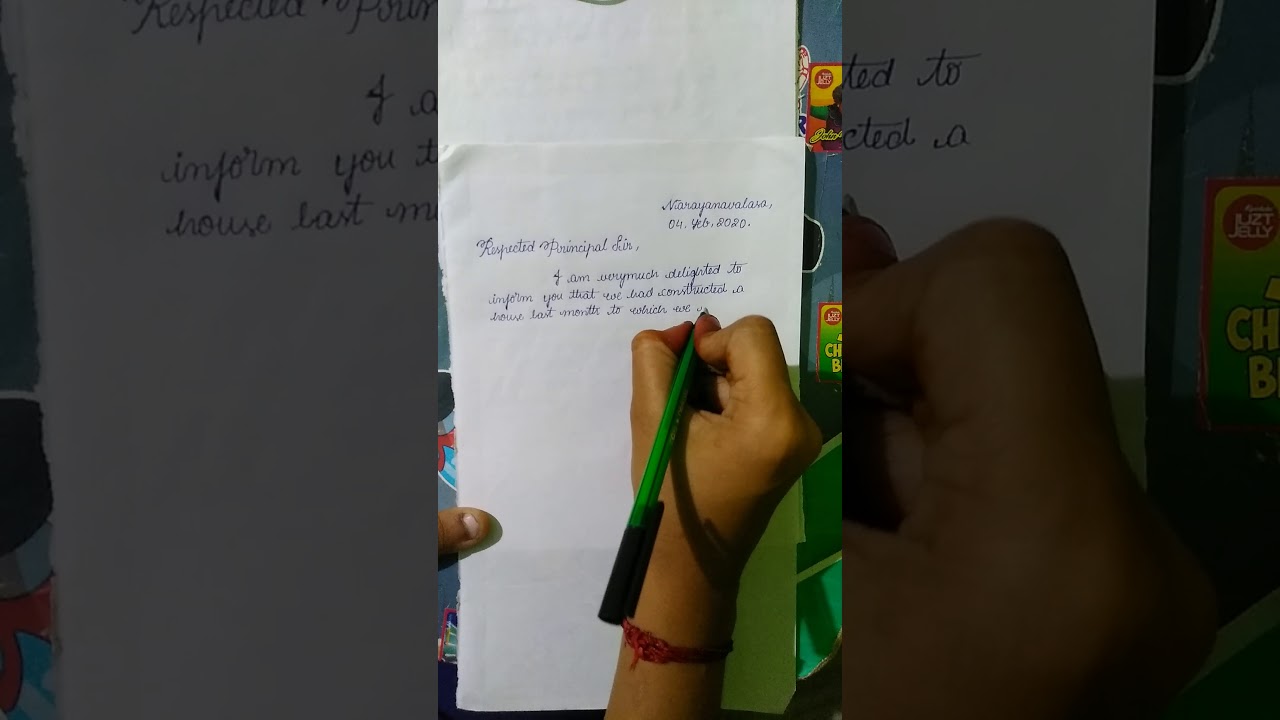 Narayanavalasa,
04. Feb, 2020.
Respected Principal Sir,
I am verymuch delighted to
inform you that we had constructed a
house last month to which we
JUZT
JELLY